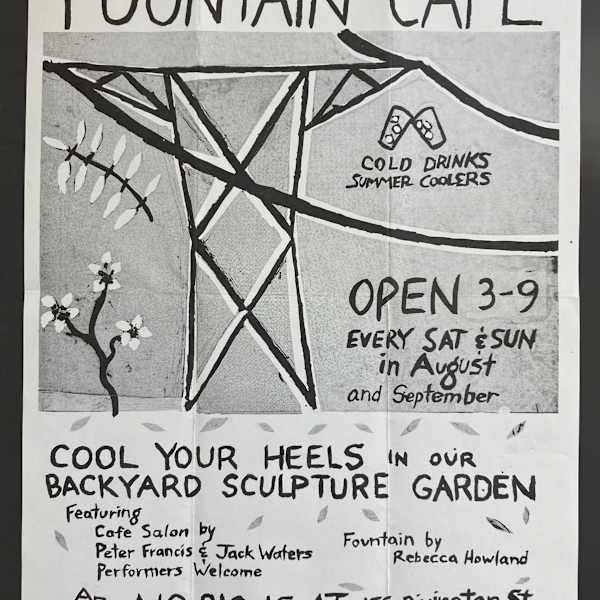 FOUNTAIN CAFE
COLD DRINKS
SUMMER COOLERS
OPEN 3-9
EVERY SAT & SUN
in August
and September
COOL YOUR HEELS IN OUR
BACKYARD SCULPTURE GARDEN
Featuring
Cafe Salon by
Peter Francis & Jack Waters
Performers Welcome
Fountain by
Rebecca Howland
NO RIO IS AT 156 Rivington St